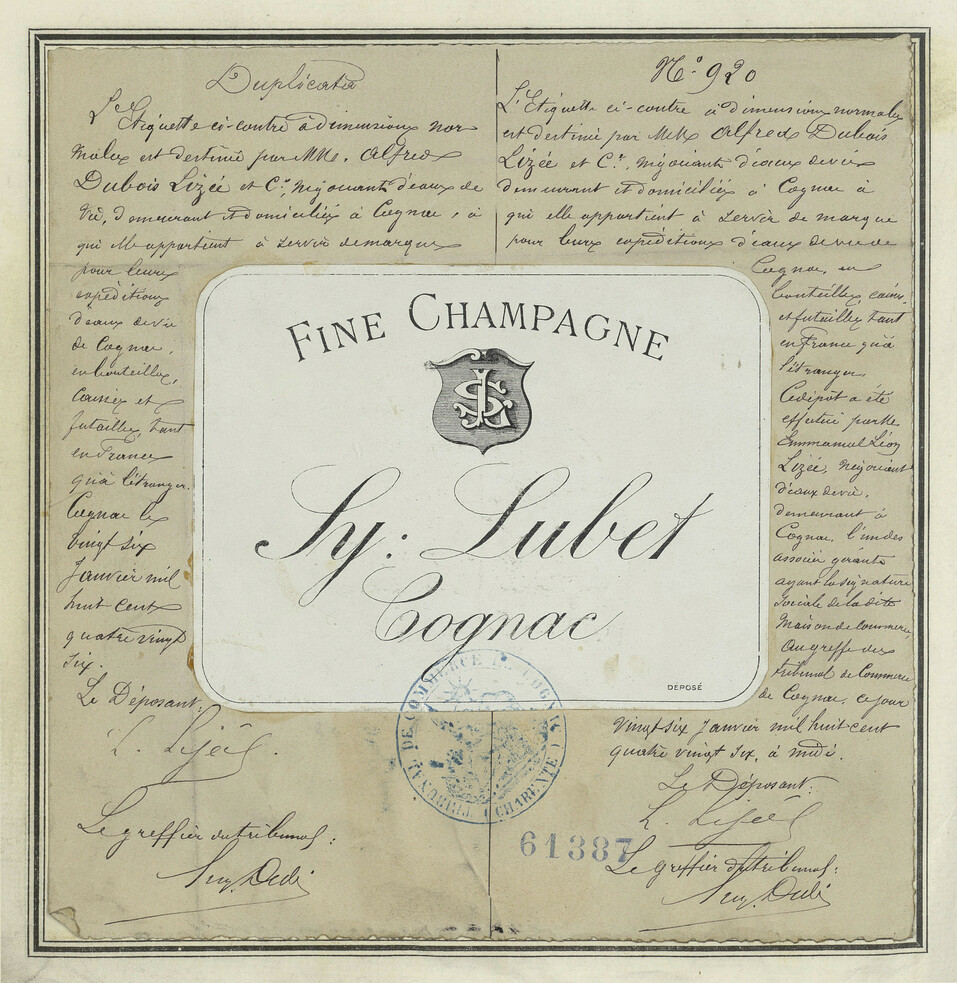 Duplicata
L'Etiquette ci-contre à dimensions nor
males est destinée par MM. Alfred
Dubois Lizée et Cie, négociants d'eaux de
vie, demeurant et domiciliés à Cognac, à
qui elle appartient à servir de marque
pour leurs
expéditions
d'eaux de vie
de Cognac,
en bouteilles,
caisses et
futailles, tant
en France
qu'à l'étranger.
Cognac le
vingt six
Janvier mil
huit cent
quatre vingt
six.
Le Déposant:
L. Lizée
Le greffier du tribunal:
No. 920
L'Etiquette ci-contre à dimensions normales
est destinée par MM Alfred Dubois
Lizée et Cie, négociants d'eaux de vie
demeurant et domiciliés à Cognac à
qui elle appartient à servir de marque
pour leurs expéditions d'eaux de vie de
Cognac, en
bouteilles, caisses
et futailles, tant
en France qu'à
l'étranger
Ce dépôt a été
effectué par Mr
Emmanuel Léon
Lizée, négociant
d'eaux de vie,
demeurant à
Cognac, l'un des
associés gérants
ayant la signature
sociale de la dite
Maison de Commerce,
au greffe du
tribunal de Commerce
de Cognac, ce jour
vingt six Janvier mil huit cent
quatre vingt six, à midi.
Le Déposant:
L. Lizée
Le greffier du tribunal:
FINE CHAMPAGNE
Sy: Lubet
Cognac
DEPOSÉ
TRIBUNAL DE COMMERCE DE COGNAC (CHARENTE)
61387